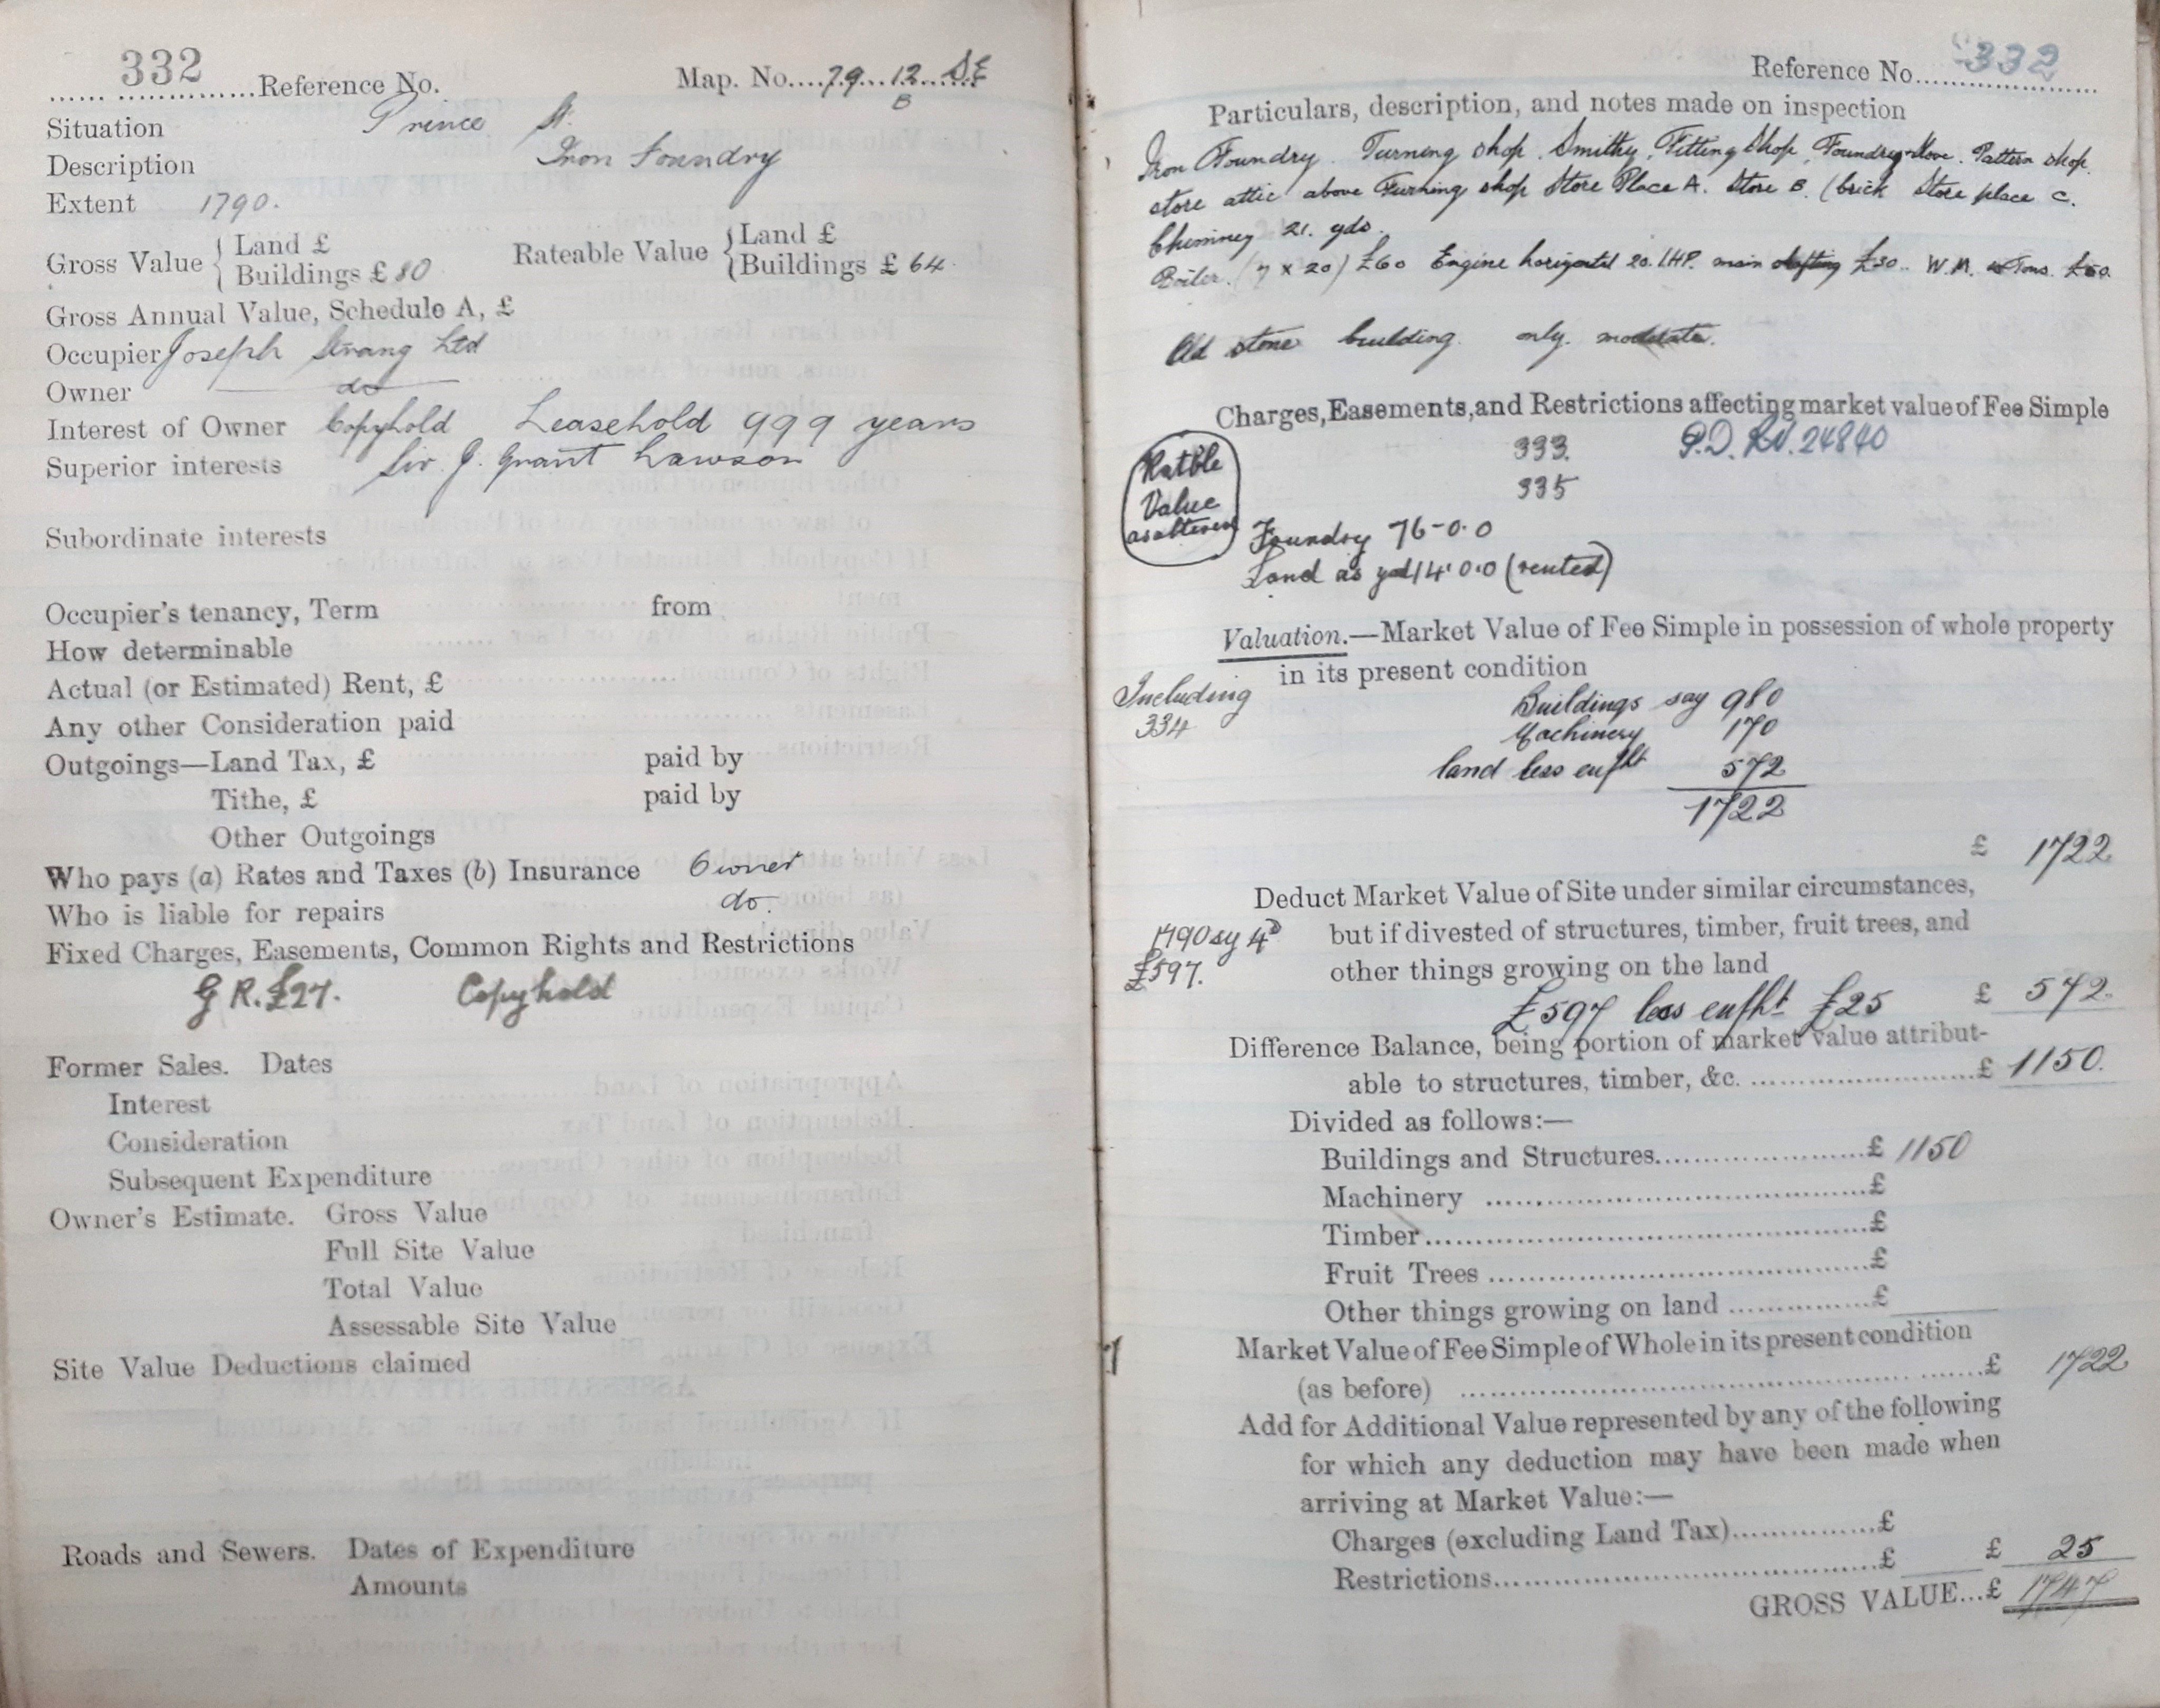 332 Reference No. Map. No. 79 12 SE
B
Situation Prince St.
Description Iron Foundry
Extent 1790.
Gross Value { Land £
Buildings £ 80
Rateable Value { Land £
Buildings £ 64
Gross Annual Value, Schedule A, £
Occupier Joseph Strang Ltd
Owner do
Interest of Owner Copyhold Leasehold 999 years
Superior interests Sir J. Grant Lawson
Subordinate interests
Occupier's tenancy, Term from
How determinable
Actual (or Estimated) Rent, £
Any other Consideration paid
Outgoings—Land Tax, £ paid by
Tithe, £ paid by
Other Outgoings
Who pays (a) Rates and Taxes (b) Insurance Owner
Who is liable for repairs do.
Fixed Charges, Easements, Common Rights and Restrictions
G R. £27. Copyhold
Former Sales. Dates
Interest
Consideration
Subsequent Expenditure
Owner's Estimate. Gross Value
Full Site Value
Total Value
Assessable Site Value
Site Value Deductions claimed
Roads and Sewers. Dates of Expenditure
Amounts
Reference No. 332
Particulars, description, and notes made on inspection
Iron Foundry. Turning shop. Smithy, Fitting Shop, Foundry Stove. Pattern shop.
store attic above Turning shop Store Place A. Store B. (brick Store place C.
Chimney 21. yds.
Boiler. (7 x 20) £60 Engine horizontal 20. I.HP. main shafting £50.. W.M. Tons. £60.
Old stone building. only. moderate.
Charges, Easements, and Restrictions affecting market value of Fee Simple
Ratble
Value
as altered
333. P.D. RV. 24840
335
Foundry 76-0.0
Land as yd 14.0.0 (rented)
Valuation.—Market Value of Fee Simple in possession of whole property
in its present condition
Including
334
Buildings say 980
Machinery 170
land less enfht 572
1722
£ 1722
Deduct Market Value of Site under similar circumstances,
but if divested of structures, timber, fruit trees, and
other things growing on the land
1790 sy 4D
£597.
£597 less enfht £25 £ 572.
Difference Balance, being portion of market value attribut-
able to structures, timber, &c. £ 1150.
Divided as follows:—
Buildings and Structures £ 1150
Machinery £
Timber £
Fruit Trees £
Other things growing on land £
Market Value of Fee Simple of Whole in its present condition
(as before) £ 1722
Add for Additional Value represented by any of the following
for which any deduction may have been made when
arriving at Market Value:—
Charges (excluding Land Tax) £
Restrictions £ £ 25
GROSS VALUE...£ 1747